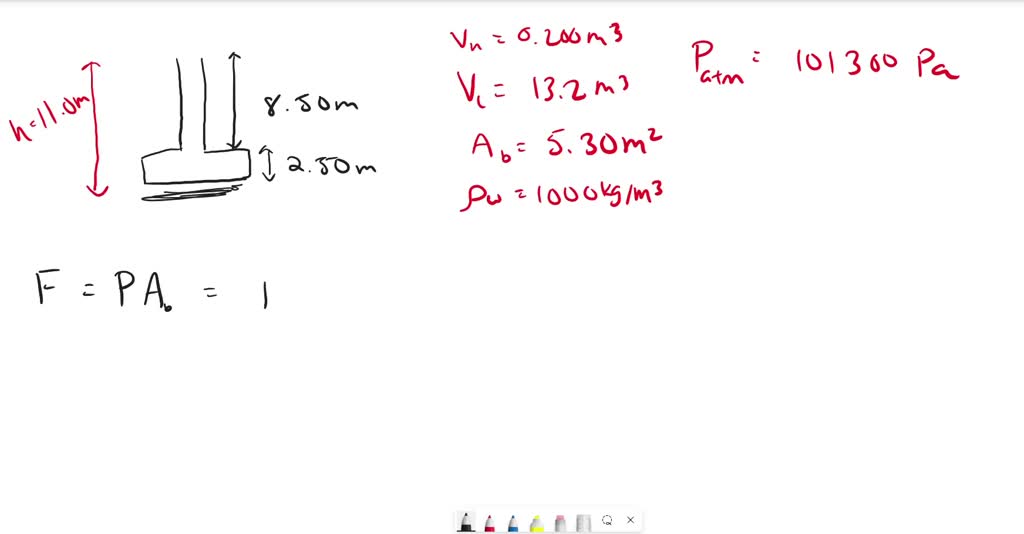 h=11.0m
8.50m
2.50m
Vn = 0.200m³
Vc = 13.2m³
Ab = 5.30m²
ρw = 1000kg/m³
Patm = 101300 Pa
F = PAb = 1